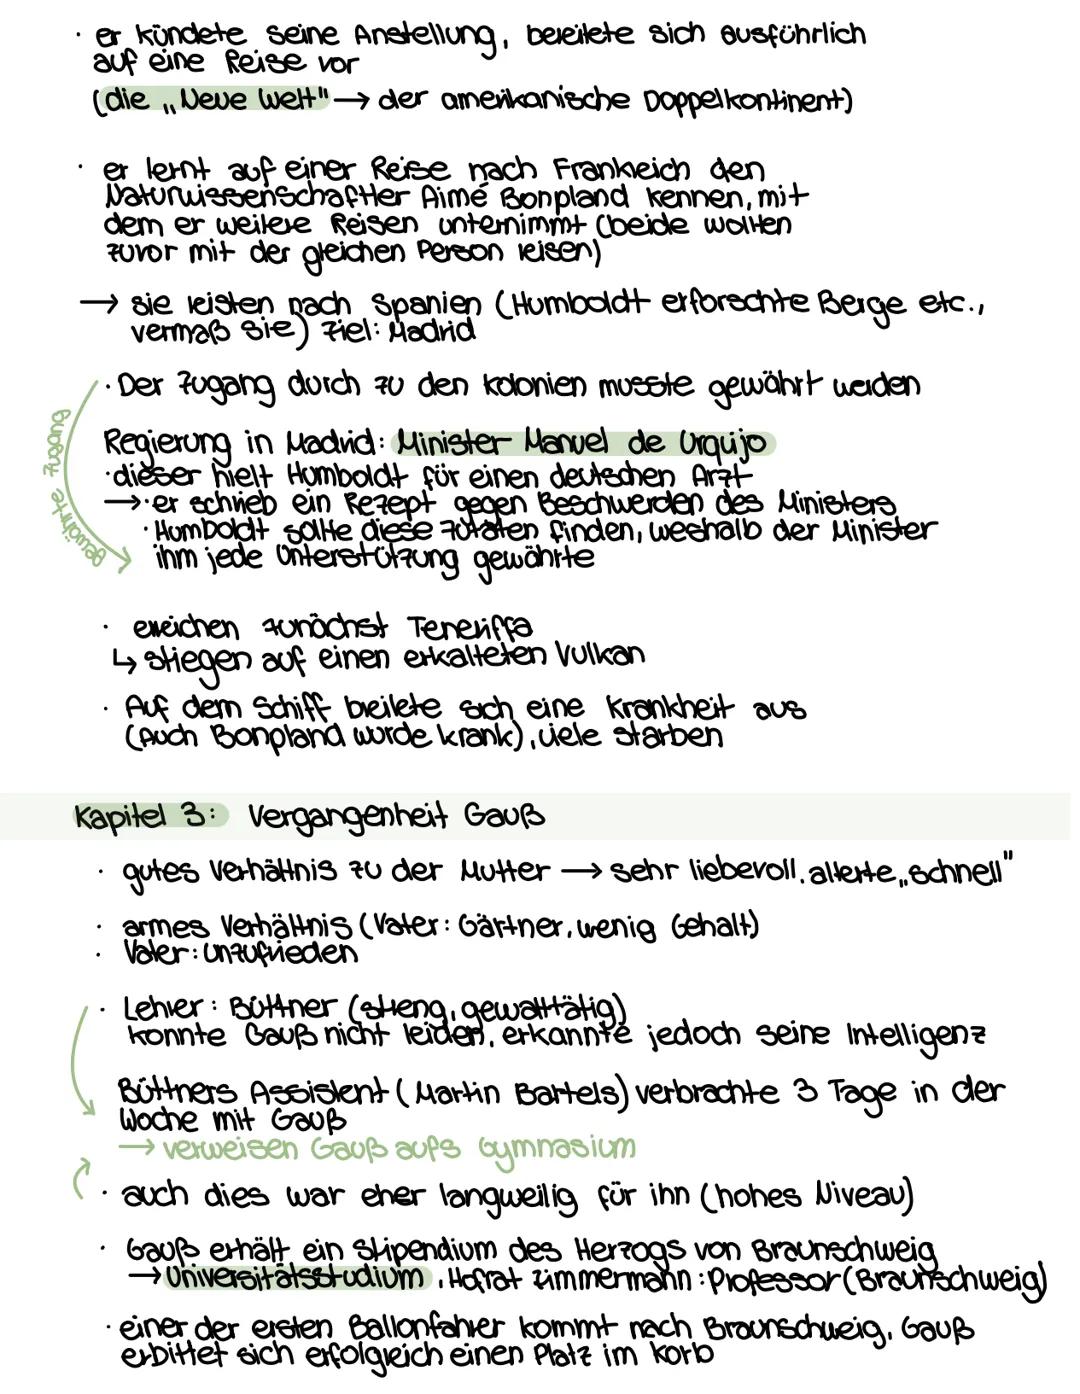 · er kündete seine Anstellung, bereitete sich ausführlich
auf eine Reise vor
(die „Neue Welt" → der amerikanische Doppelkontinent)
· er lernt auf einer Reise nach Frankreich den
Naturwissenschaftler Aimé Bonpland kennen, mit
dem er weitere Reisen unternimmt (beide wollten
zuvor mit der gleichen Person reisen)
→ sie reisten nach Spanien (Humboldt erforschte Berge etc.,
vermaß sie) Ziel: Madrid
· Der Zugang durch zu den Kolonien musste gewährt werden
gewährte Zugang
Regierung in Madrid: Minister Manuel de Urquijo
· dieser hielt Humboldt für einen deutschen Arzt
→ · er schrieb ein Rezept gegen Beschwerden des Ministers
· Humboldt sollte diese Zutaten finden, weshalb der Minister
ihm jede Unterstützung gewährte
· erreichen zunächst Teneriffa
↳ stiegen auf einen erkalteten Vulkan
· Auf dem Schiff breitete sich eine Krankheit aus
(Auch Bonpland wurde krank), viele starben
Kapitel 3: Vergangenheit Gauß
· gutes Verhältnis zu der Mutter → sehr liebevoll, alterte „schnell"
· armes Verhältnis (Vater: Gärtner, wenig Gehalt)
· Vater: unzufrieden
· Lehrer: Büttner (streng, gewalttätig)
konnte Gauß nicht leiden, erkannte jedoch seine Intelligenz
Büttners Assistent (Martin Bartels) verbrachte 3 Tage in der
Woche mit Gauß
→ verweisen Gauß aufs Gymnasium
· auch dies war eher langweilig für ihn (hohes Niveau)
· Gauß erhält ein Stipendium des Herzogs von Braunschweig
→ Universitätsstudium, Hofrat Zimmermann: Professor (Braunschweig)
· einer der ersten Ballonfahrer kommt nach Braunschweig, Gauß
erbittet sich erfolgreich einen Platz im Korb